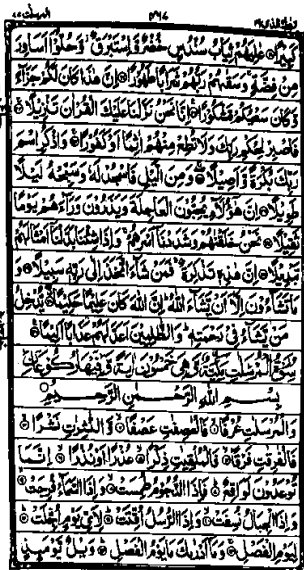 كَبِيرًا ۝ عٰلِيَهُمْ ثِيَابُ سُنْدُسٍ خُضْرٌ وَّاِسْتَبْرَقٌ وَّحُلُّوْٓا اَسَاوِرَ
مِنْ فِضَّةٍ وَسَقٰىهُمْ رَبُّهُمْ شَرَابًا طَهُوْرًا ۝ اِنَّ هٰذَا كَانَ لَكُمْ جَزَآءً
وَّكَانَ سَعْيُكُمْ مَّشْكُوْرًا ۝ اِنَّا نَحْنُ نَزَّلْنَا عَلَيْكَ الْقُرْاٰنَ تَنْزِيْلًا ۝
فَاصْبِرْ لِحُكْمِ رَبِّكَ وَلَا تُطِعْ مِنْهُمْ اٰثِمًا اَوْ كَفُوْرًا ۝ وَاذْكُرِ اسْمَ
رَبِّكَ بُكْرَةً وَّاَصِيْلًا ۝ وَمِنَ الَّيْلِ فَاسْجُدْ لَهٗ وَسَبِّحْهُ لَيْلًا
طَوِيْلًا ۝ اِنَّ هٰٓؤُلَآءِ يُحِبُّوْنَ الْعَاجِلَةَ وَيَذَرُوْنَ وَرَآءَهُمْ يَوْمًا
ثَقِيْلًا ۝ نَحْنُ خَلَقْنٰهُمْ وَشَدَدْنَآ اَسْرَهُمْ وَاِذَا شِئْنَا بَدَّلْنَآ اَمْثَالَهُمْ
تَبْدِيْلًا ۝ اِنَّ هٰذِهٖ تَذْكِرَةٌ فَمَنْ شَآءَ اتَّخَذَ اِلٰى رَبِّهٖ سَبِيْلًا ۝ وَ
مَا تَشَآءُوْنَ اِلَّآ اَنْ يَّشَآءَ اللّٰهُ اِنَّ اللّٰهَ كَانَ عَلِيْمًا حَكِيْمًا ۝ يُّدْخِلُ
مَنْ يَّشَآءُ فِيْ رَحْمَتِهٖ وَالظّٰلِمِيْنَ اَعَدَّ لَهُمْ عَذَابًا اَلِيْمًا ۝
سُوْرَةُ الْمُرْسَلٰتِ مَكِّيَّةٌ وَّهِيَ خَمْسُوْنَ اٰيَةً وَّفِيْهَا رُكُوْعَانِ
بِسْمِ اللّٰهِ الرَّحْمٰنِ الرَّحِيْمِ
وَالْمُرْسَلٰتِ عُرْفًا ۝ فَالْعٰصِفٰتِ عَصْفًا ۝ وَّالنّٰشِرٰتِ نَشْرًا ۝
فَالْفٰرِقٰتِ فَرْقًا ۝ فَالْمُلْقِيٰتِ ذِكْرًا ۝ عُذْرًا اَوْ نُذْرًا ۝ اِنَّمَا
تُوْعَدُوْنَ لَوَاقِعٌ ۝ فَاِذَا النُّجُوْمُ طُمِسَتْ ۝ وَاِذَا السَّمَآءُ فُرِجَتْ ۝
وَاِذَا الْجِبَالُ نُسِفَتْ ۝ وَاِذَا الرُّسُلُ اُقِّتَتْ ۝ لِاَيِّ يَوْمٍ اُجِّلَتْ ۝
لِيَوْمِ الْفَصْلِ ۝ وَمَآ اَدْرٰىكَ مَا يَوْمُ الْفَصْلِ ۝ وَيْلٌ يَّوْمَئِذٍ